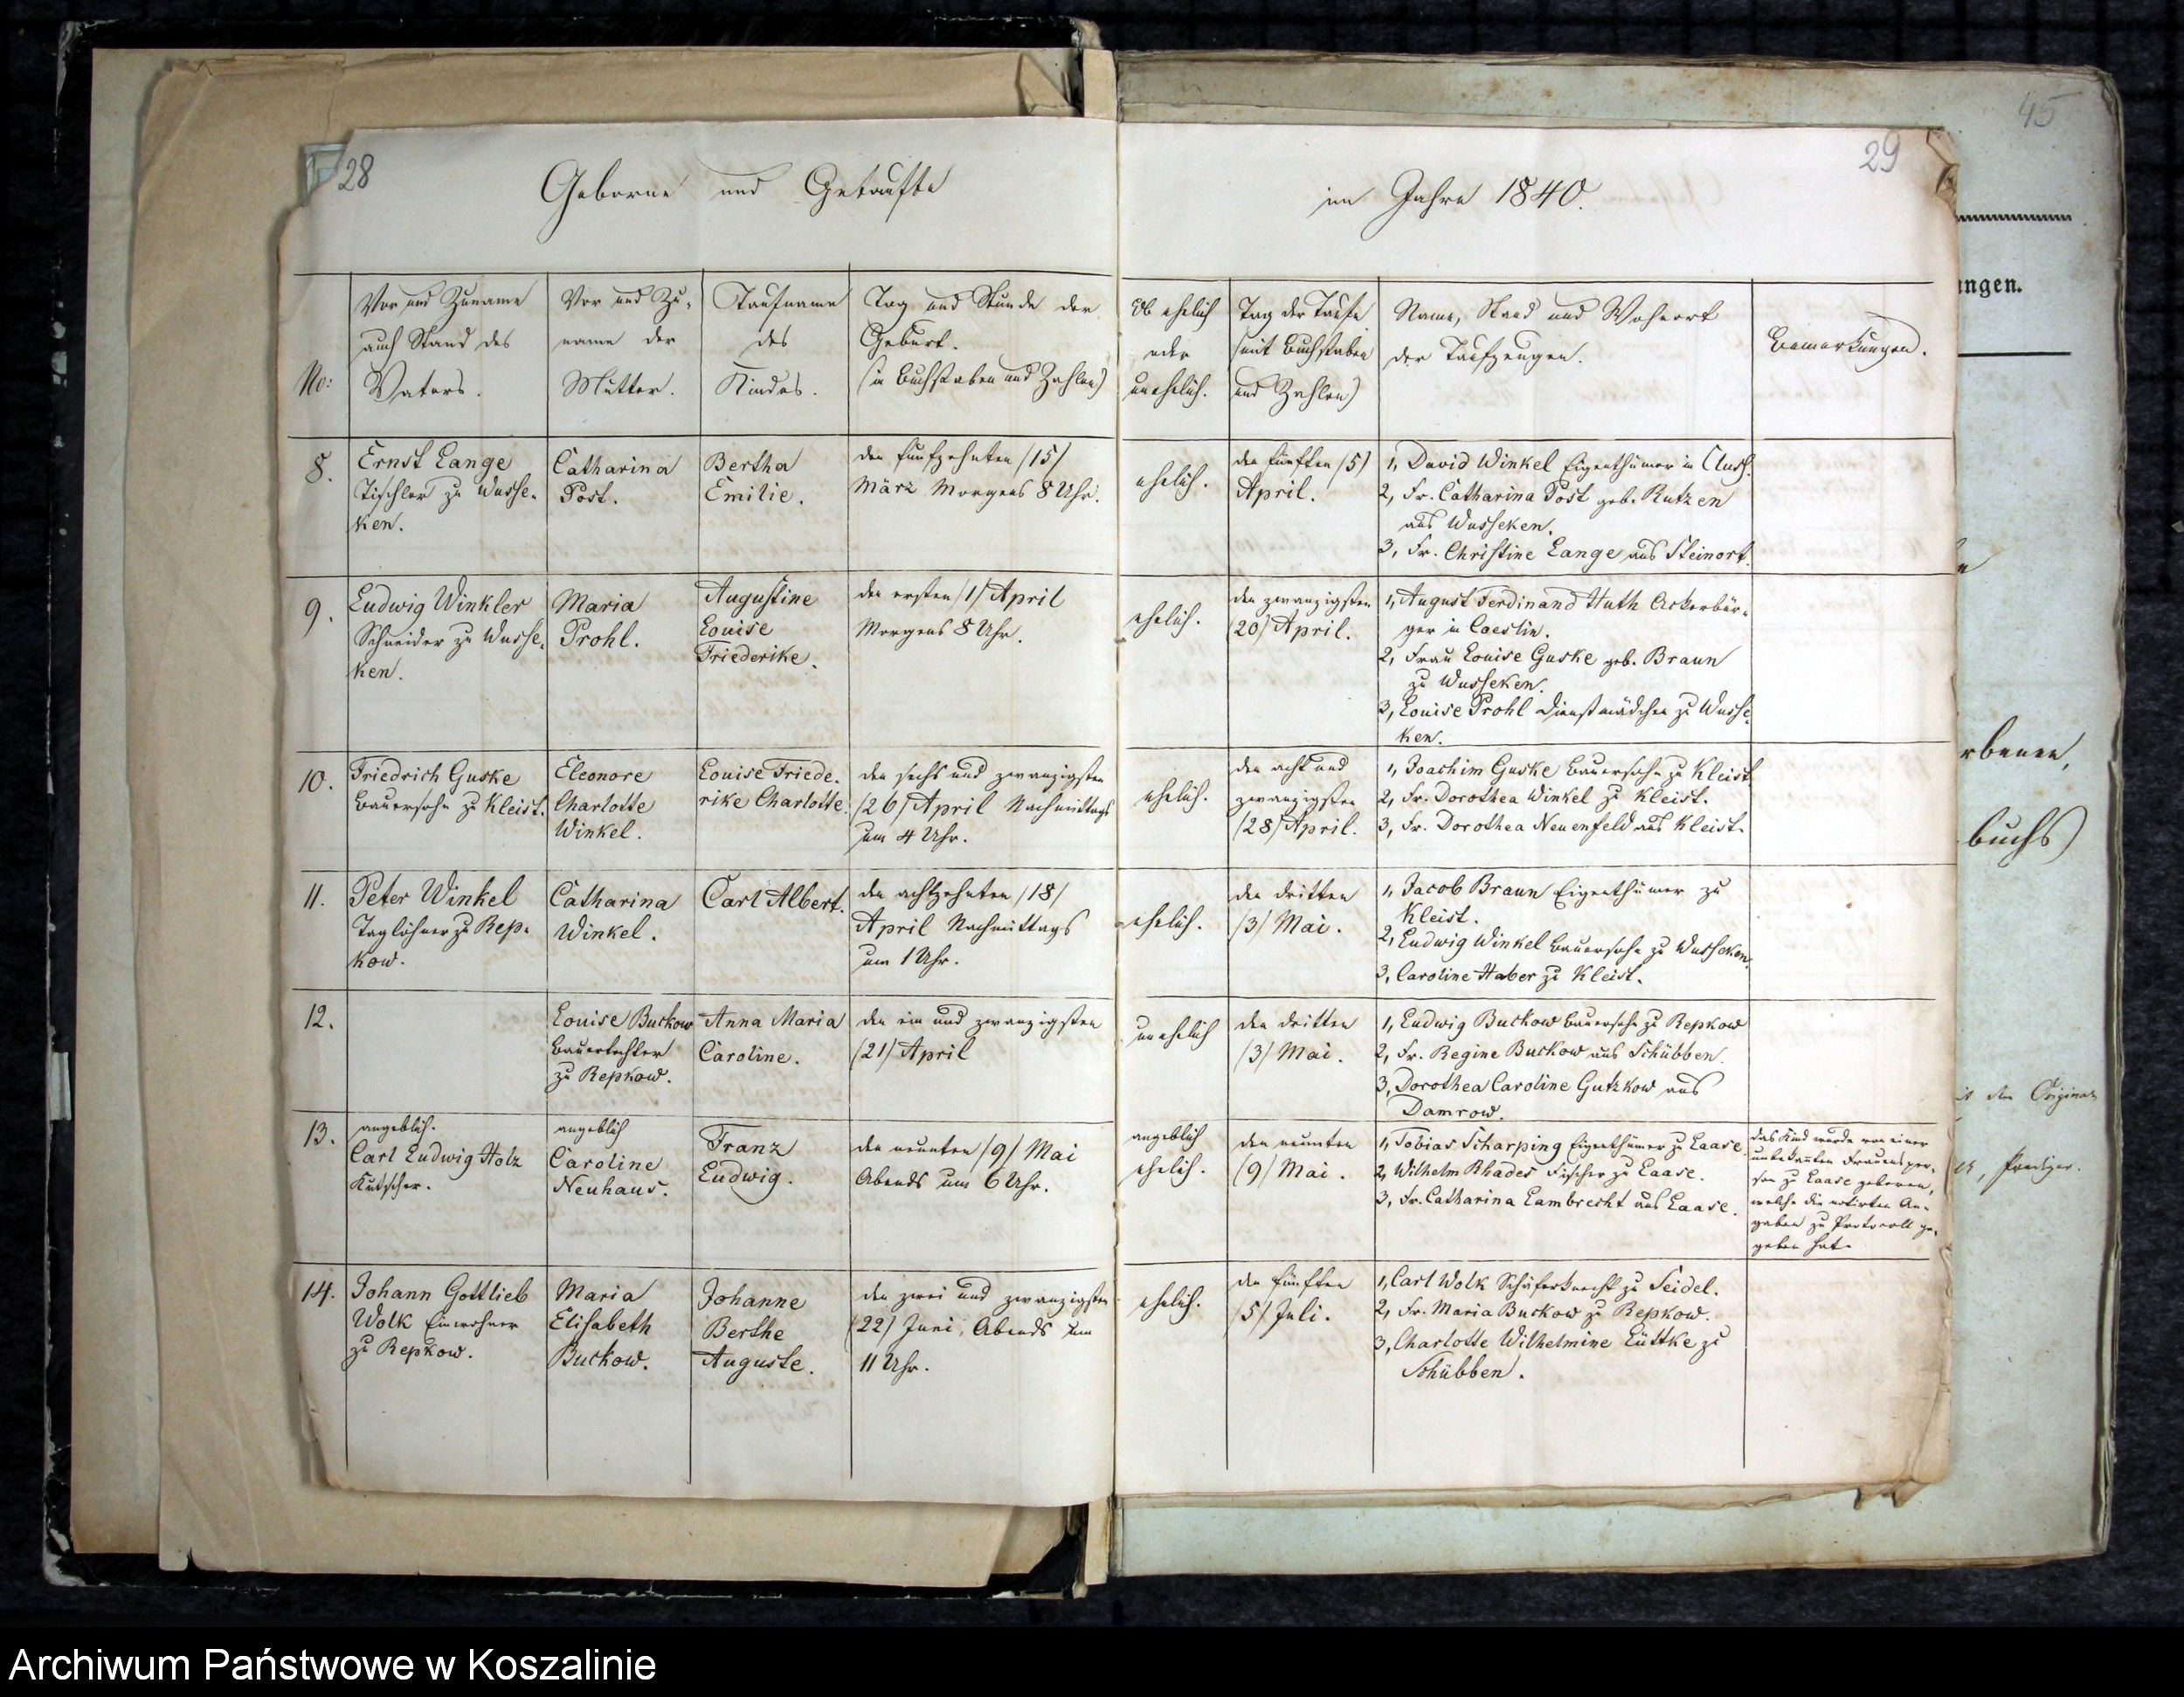 28
Geborne und Getaufte
No:
Vor und Zuname
auch Stand des
Vaters.
Vor und Zu-
name der
Mutter.
Taufname
des
Kindes.
Tag und Stunde der
Geburt.
(in Buchstaben und Zahlen)
8.
Ernst Lange
Tischler zu Wusse-
ken.
Catharina
Post.
Bertha
Emilie.
den funfzehnten /15/
März Morgens 8 Uhr.
9.
Ludwig Winkler
Schneider zu Wusse-
ken.
Maria
Prohl.
Augustine
Louise
Friederike.
den ersten /1/ April
Morgens 8 Uhr.
10.
Friedrich Guske
Bauersohn zu Kleist.
Eleonore
Charlotte
Winkel.
Louise Friede-
rike Charlotte.
den sechs und zwanzigsten
/26/ April Nachmittags
um 4 Uhr.
11.
Peter Winkel
Taglöhner zu Rep-
kow.
Catharina
Winkel.
Carl Albert.
den achtzehnten /18/
April Nachmittags
um 1 Uhr.
12.
Louise Buckow
Bauertochter
zu Repkow.
Anna Maria
Caroline.
den ein und zwanzigsten
/21/ April
13.
angeblich.
Carl Ludwig Holz
Kutscher.
angeblich
Caroline
Neuhaus.
Franz
Ludwig.
den neunten /9/ Mai
Abends um 6 Uhr.
14.
Johann Gottlieb
Wolk Einwohner
zu Repkow.
Maria
Elisabeth
Buckow.
Johanne
Berthe
Auguste.
den zwei und zwanzigsten
/22/ Juni, Abends um
11 Uhr.
29
im Jahre 1840.
Ob ehelich
oder
unehelich.
Tag der Taufe
(mit Buchstaben
und Zahlen)
Name, Stand und Wohnort
der Taufzeugen.
Bemerkungen.
ehelich.
den fünften /5/
April.
1, David Winkel Eigenthümer in
2, Fr. Catharina Post geb. Rutzen
aus Wusseken.
3, Fr. Christine Lange aus Steinort.
ehelich.
den zwanzigsten
/20/ April.
1, August Ferdinand Huth Ackerbür-
ger in Coeslin.
2, Frau Louise Guske geb. Braun
zu Wusseken.
3, Louise Prohl Dienstmädchen zu Wusse-
ken.
ehelich.
den acht und
zwanzigsten
/28/ April.
1, Joachim Guske Bauersohn zu Kleist
2, Fr. Dorothea Winkel zu Kleist.
3, Fr. Dorothea Neuenfeld aus Kleist.
ehelich.
den dritten
/3/ Mai.
1, Jacob Braun Eigenthümer zu
Kleist.
2, Ludwig Winkel Bauersohn zu Wusseken.
3, Caroline Haber zu Kleist.
unehelich
den dritten
/3/ Mai.
1, Ludwig Buckow Bauersohn zu Repkow
2, Fr. Regine Buckow aus Schübben.
3, Dorothea Caroline Gutzkow aus
Damrow.
angeblich
ehelich.
den neunten
/9/ Mai.
1, Tobias Scharping Eigenthümer zu Laase.
2, Wilhelm Rhades Fischer zu Laase.
3, Fr. Catharina Lambrecht aus Laase.
das Kind wurde von einer
unbekannten Frauensper-
son zu Laase geboren,
welche die notirten An-
gaben zu Protocoll ge-
geben hat.
ehelich.
den fünften
/5/ Juli.
1, Carl Wolk Schäferknecht zu Seidel.
2, Fr. Maria Buckow zu Repkow.
3, Charlotte Wilhelmine Lüttke zu
Schübben.
45
ungen.
rbenen,
buchs)
Original
Prediger.
Archiwum Państwowe w Koszalinie